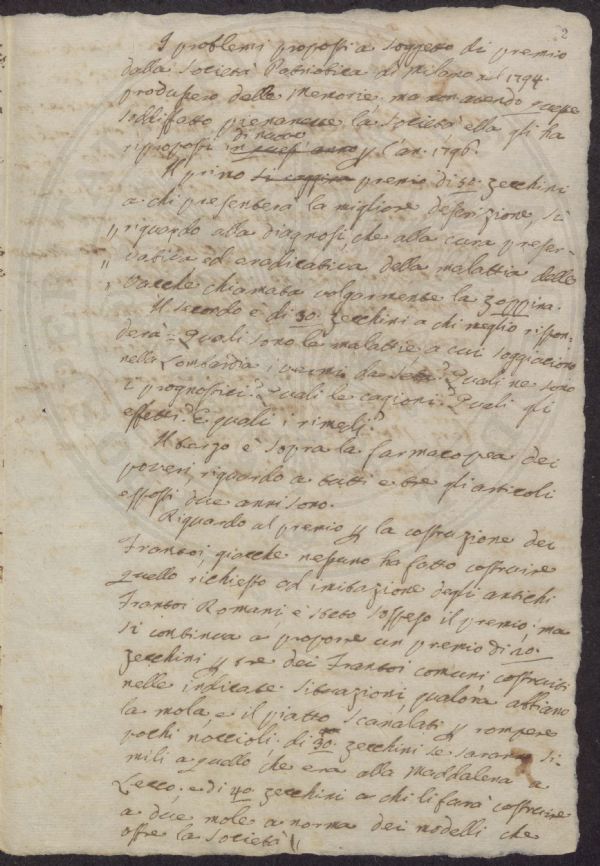 2
I problemi proposti a soggetto di premio
dalla Società Patriotica di Milano nel 1794.
produssero delle Memorie, ma non avendo
soddisfatto pienamente la Società ella gli ha
riproposti in quest'anno di nuovo p l'an. 1796.
Il primo premio di 50. zecchini
a chi presenterà la migliore descrizione, sì
" riguardo alla diagnosi, che alla cura preser-
" vativa ed eradicativa della malattia delle
" vacche chiamata volgarmente la zoppina.
Il secondo è di 30. zecchini a chi meglio rispon-
derà = Quali sono le malattie a cui soggiaciono
nella Lombardia i vermi da seta? Quali ne sono
i prognostici? Quali le cagioni? Quali gli
effetti? E quali i rimedj?
Il terzo è sopra la farmacopea dei
poveri, riguardo a tutti e tre gli articoli
esposti due anni sono.
Riguardo al premio p la costruzione dei
Frantoi, giacchè nessuno ha fatto costruire
quello richiesto ad imitazione degli antichi
Frantoi Romani è stato sospeso il premio; ma
si continua a proporre un premio di 20.
zecchini p tre dei Frantoi comuni costruiti
nelle indicate situazioni, qualora abbiano
la mola, e il piatto scanalati p rompere
pochi noccioli; di 30. zecchini se saranno si-
mili a quello che era alla Maddalena a
Lecco; e di 40. zecchini a chi li farà costruire
a due mole a norma dei modelli che
offre la Società "